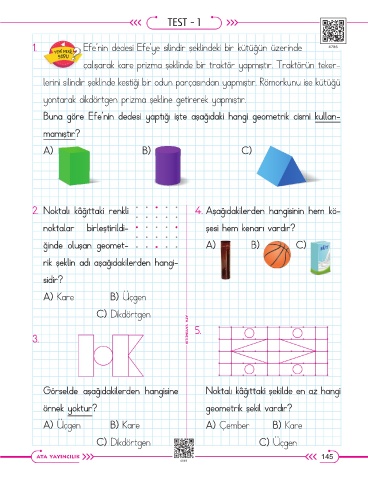 TEST - 1
1. Efe'nin dedesi Efe'ye silindir şeklindeki bir kütüğün üzerinde
YENİ NESİL
SORU
çalışarak kare prizma şeklinde bir traktör yapmıştır. Traktörün teker-
lerini silindir şeklinde kestiği bir odun parçasından yapmıştır. Römorkunu ise kütüğü
yontarak dikdörtgen prizma şekline getirerek yapmıştır.
Buna göre Efe'nin dedesi yaptığı işte aşağıdaki hangi geometrik cismi kullan-
mamıştır?
A) B) C)
2. Noktalı kâğıttaki renkli
noktalar birleştirildi-
ğinde oluşan geomet-
rik şeklin adı aşağıdakilerden hangi-
sidir?
A) Kare B) Üçgen
C) Dikdörtgen
3.
Görselde aşağıdakilerden hangisine
örnek yoktur?
A) Üçgen B) Kare
C) Dikdörtgen
4. Aşağıdakilerden hangisinin hem kö-
şesi hem kenarı vardır?
A) B) C)
5.
Noktalı kâğıttaki şekilde en az hangi
geometrik şekil vardır?
A) Çember B) Kare
C) Üçgen
ATA YAYINCILIK
145